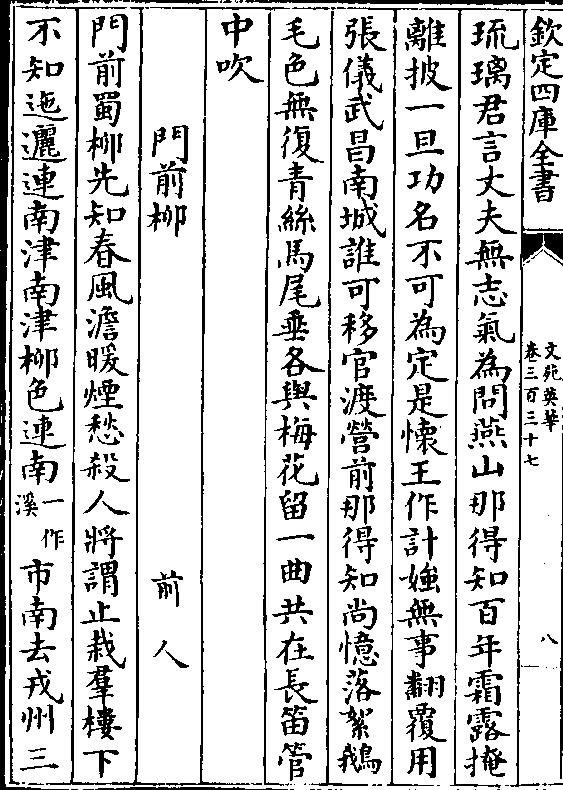 欽定四庫全書
文苑英華
卷三百三十七
八
琉璃君言丈夫無志氣為問燕山那得知百年霜露掩
離披一旦功名不可為定是懷王作計䧳無事翻覆用
張儀武昌南城誰可移官渡營前那得知尚憶落絮鵝
毛色無復青絲馬尾垂各與梅花留一曲共在長笛管
中吹
門前柳
前人
門前蜀柳先知春風澹暖煙愁殺人將謂止栽羣樓下
不知迤邐連南津南津柳色連南一作溪市南去戎州三